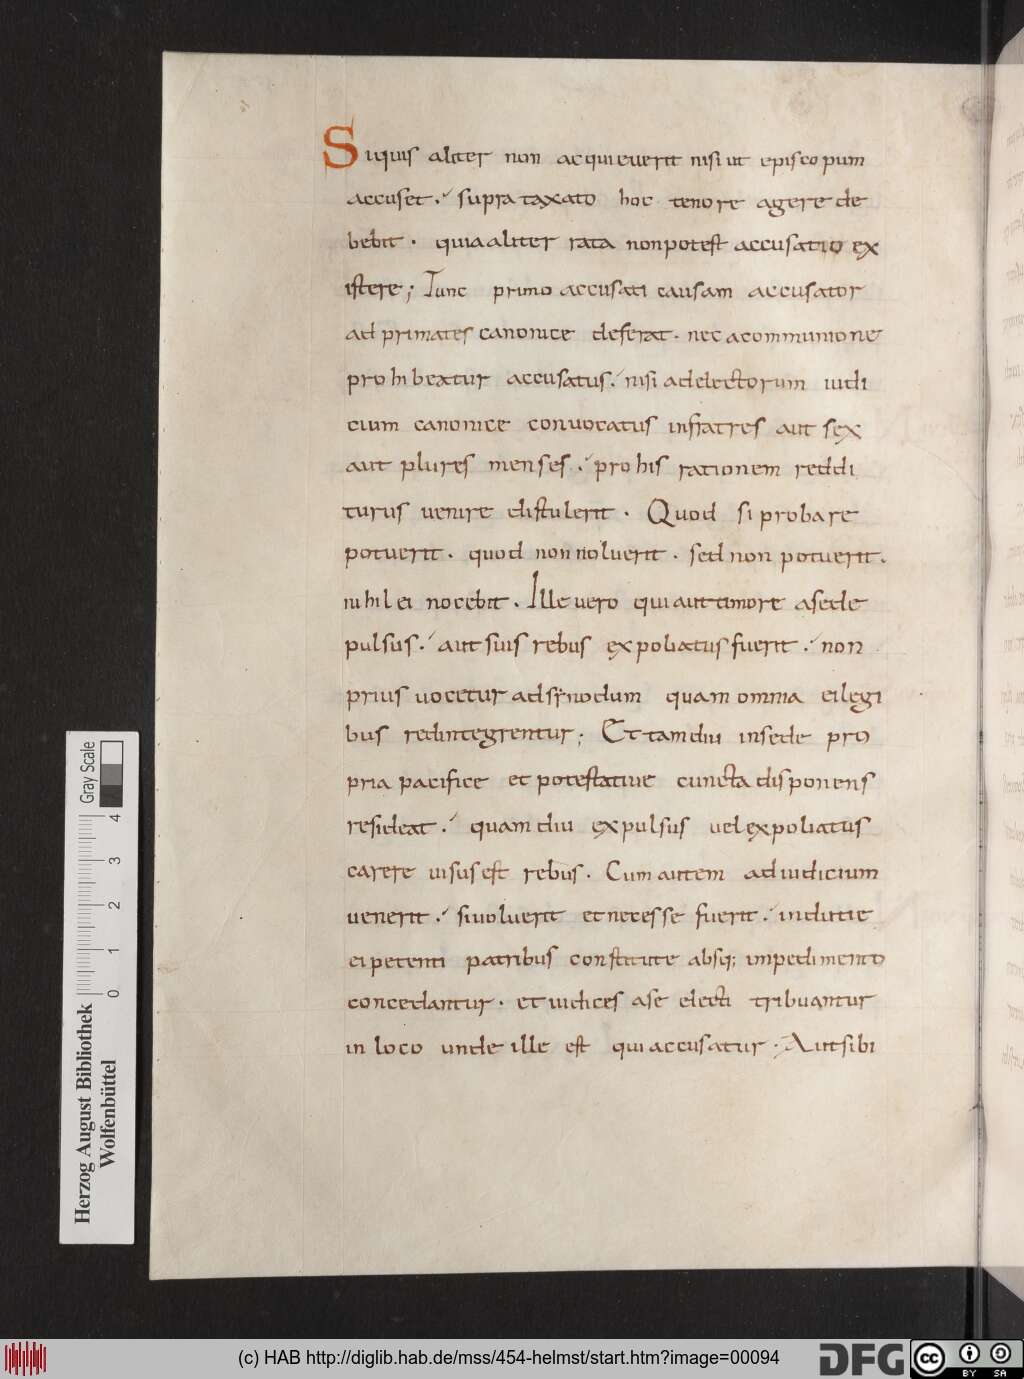 Siquis aliter non acquieuerit nisi ut episcopum
accuset. supra taxato hoc tenore agere de
bebit. quia aliter rata non potest accusatio ex
istere; Tunc primo accusati causam accusator
ad primates canonice deferat. nec a communione
prohibeatur accusatus. nisi ad electorum iudi
cium canonice conuocatus infra tres aut sex
aut plures menses. pro his rationem reddi
turus uenire distulerit. Quod si probare
potuerit. quod non noluerit. sed non potuerit.
nihil ei nocebit. Ille uero qui aut timore a sede
pulsus. aut suis rebus expoliatus fuerit. non
prius uocetur ad synodum quam omnia ei legi
bus redintegrentur; Et tamdiu in sede pro
pria pacifice et potestatiue cuncta disponens
resideat. quamdiu expulsus uel expoliatus
carere uisus est rebus. Cum autem ad iudicium
uenerit. si uoluerit et necesse fuerit. indutie
ei petenti patribus constitute absq; impedimento
concedantur. et iudices a se electi tribuantur
in loco unde ille est qui accusatur. Aut sibi
Gray Scale
0 1 2 3 4
Herzog August Bibliothek
Wolfenbüttel
(c) HAB http://diglib.hab.de/mss/454-helmst/start.htm?image=00094
DFG
cc BY SA